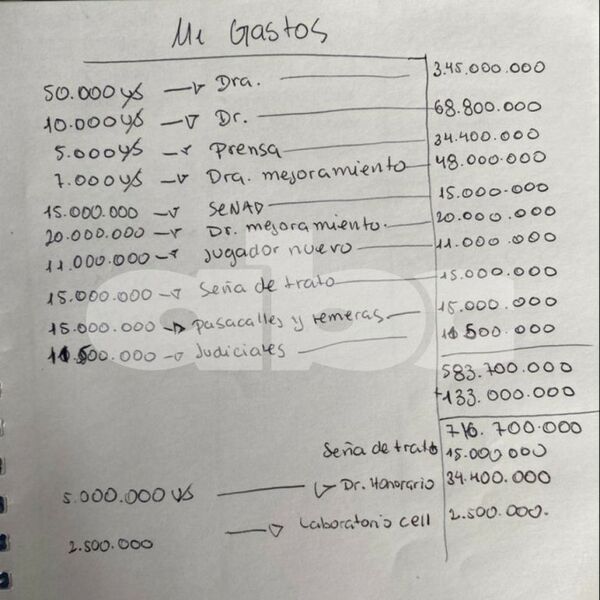 Mi Gastos
50.000 U$ → Dra. 3.45.000.000
10.000 U$ → Dr. 68.800.000
5.000 U$ → Prensa 34.400.000
7.000 U$ → Dra. mejoramiento 48.000.000
15.000.000 → SENAD 15.000.000
20.000.000 → Dr. mejoramiento. 20.000.000
11.000.000 → Jugador nuevo 11.000.000
15.000.000 → Seña de trato 15.000.000
15.000.000 → pasacalles y remeras 15.000.000
11.500.000 → Judiciales 11 500.000
583.700.000
+133.000.000
716.700.000
Seña de trato 15.000.000
5.000.000 U$ → Dr. Honorario 34.400.000
2.500.000 → Laboratorio cell 2.500.000.
abc